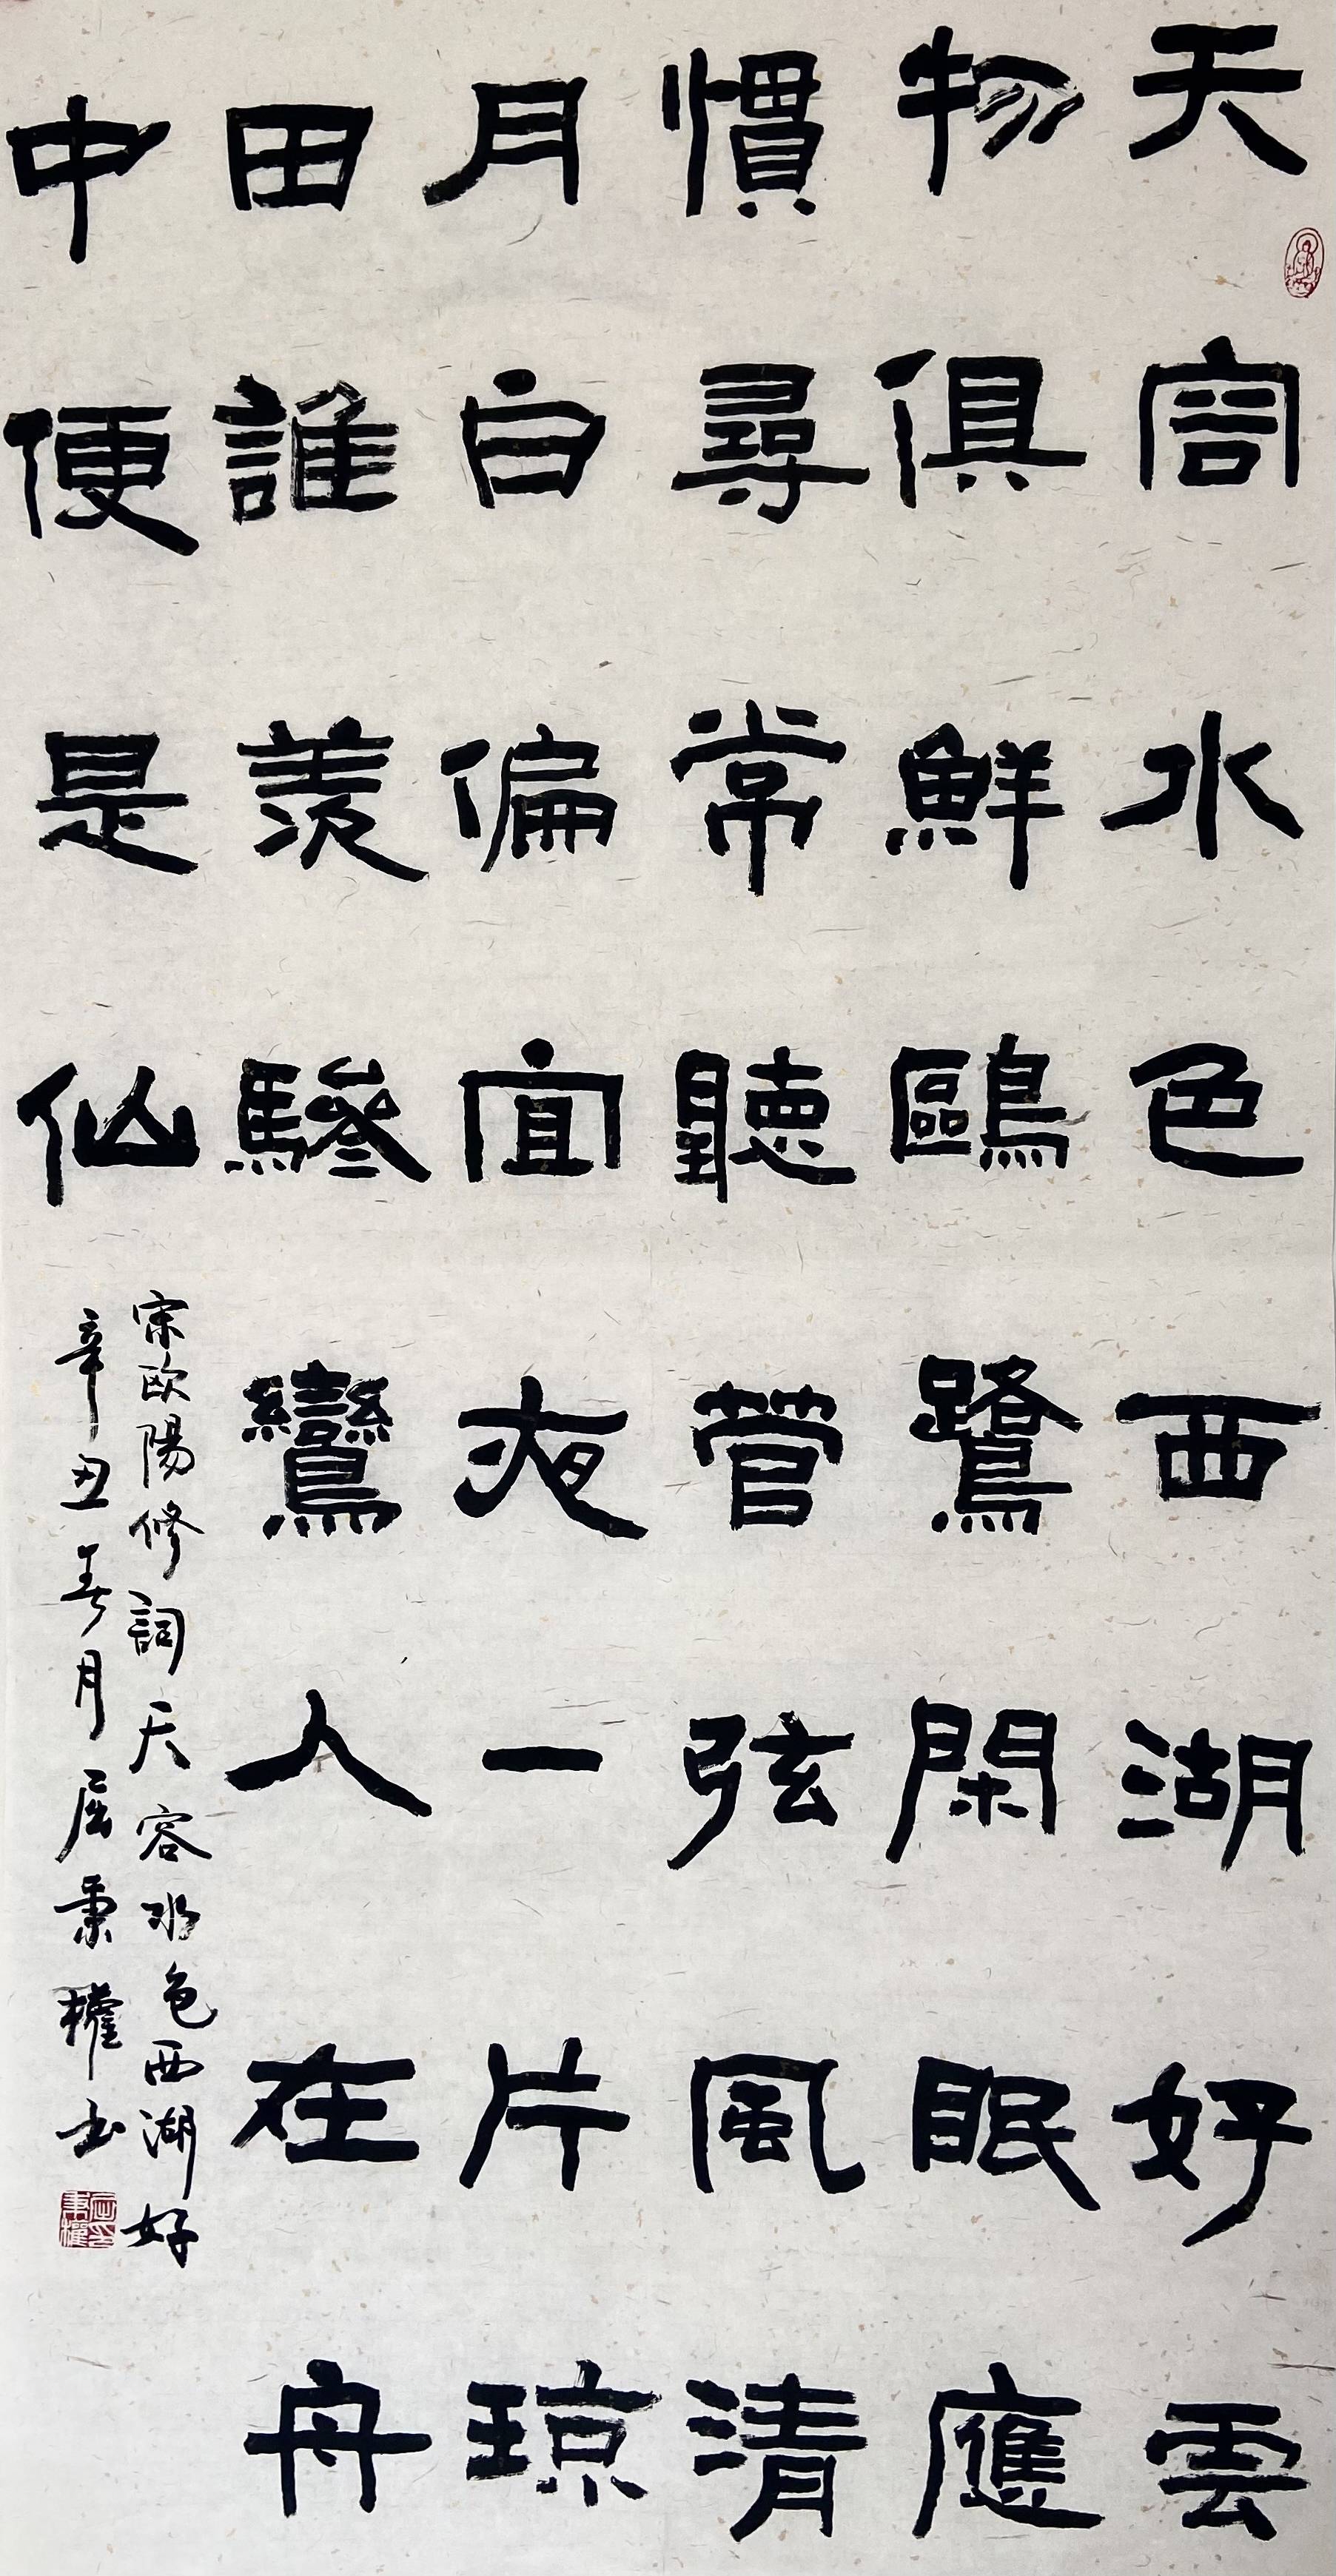 天容水色西湖好雲
物俱鮮鷗鷺閑眠應
慣尋常聽管弦風清
月白偏宜夜一片瓊
田誰羨驂鸞人在舟
中便是仙
宋欧陽修詞天容水色西湖好
辛丑春月屈秉權书